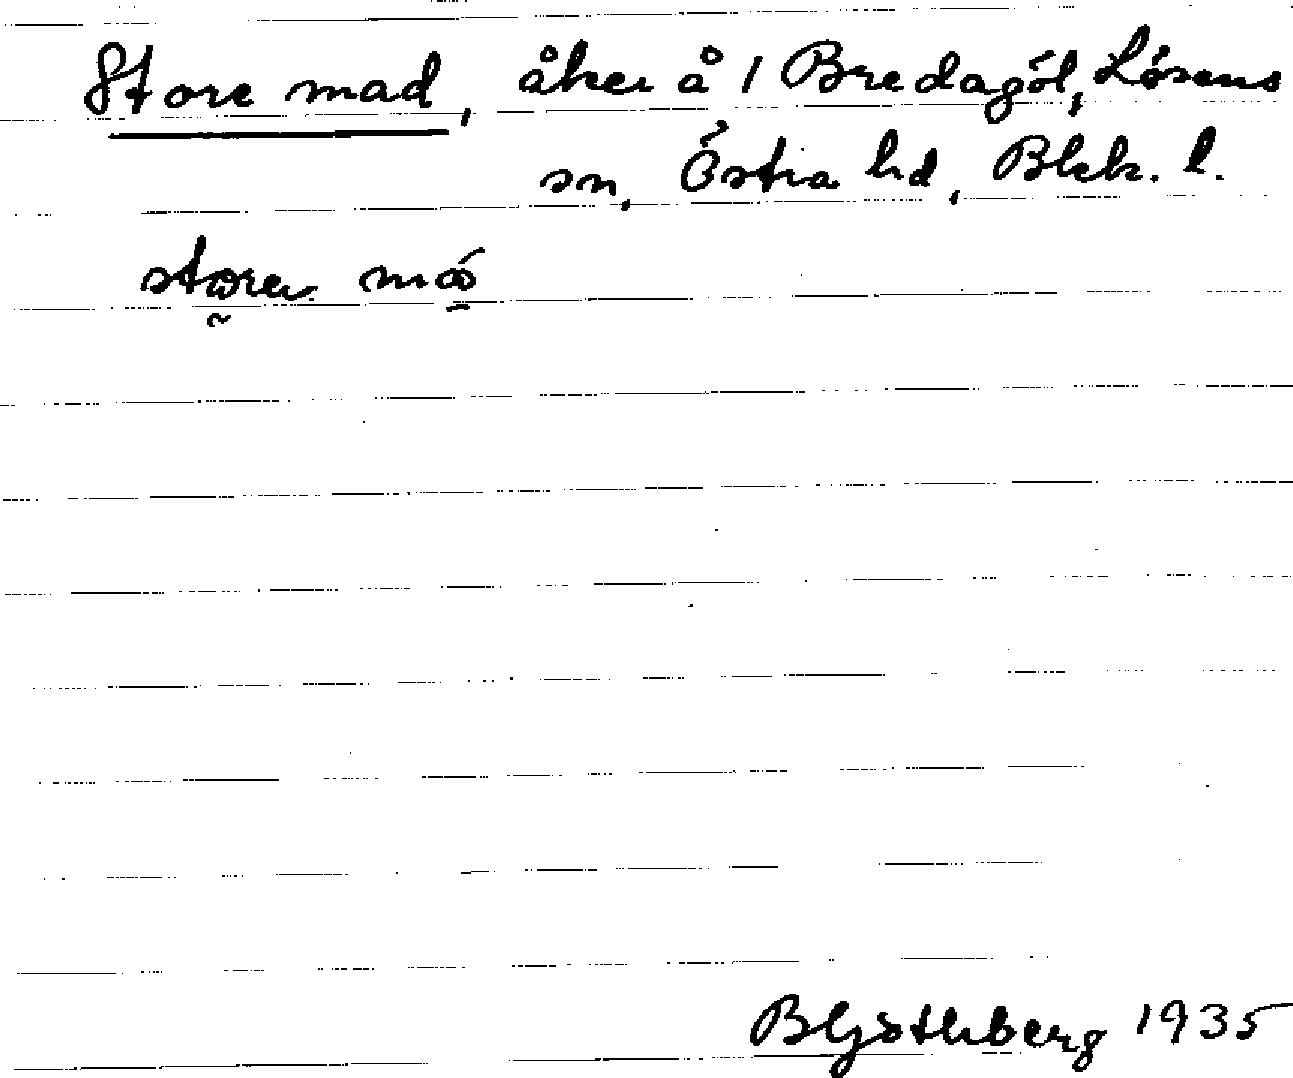 Store mad, åker å 1 Bredagöl, Lösens
sn, Östra hd, Blek. l.
B Götlberg 1935